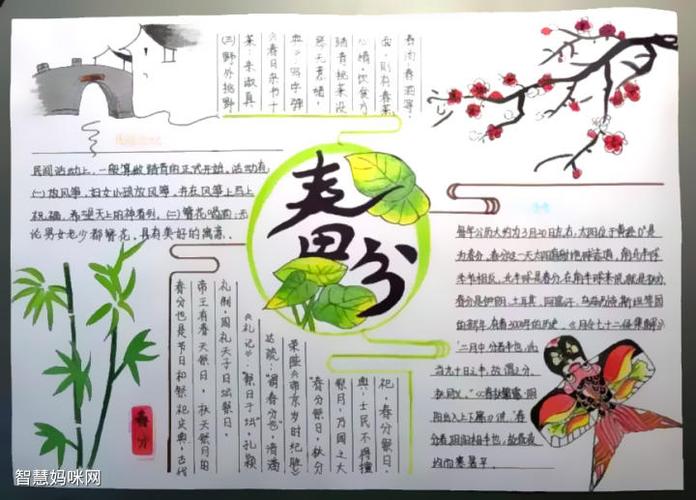 春分
民间活动上，一般算做踏青的正式开始。活动有
(一)放风筝，妇女小孩放风筝，并在风筝上写上
祝福，希望天上的神看到。(二)簪花喝酒：无
论男女老少都簪花。具有美好的寓意。
(三)野外挑野
菜：宋
春日
踏青挑菜
每年公历大约为3月20日左右，太阳位于黄经0°是
为春分。春分这一天太阳直射地球赤道，南北半球
季节相反，北半球是春分，在南半球来说就是秋分。
春分是伊朗、土耳其、阿富汗、乌兹别克斯坦等国
的新年，有着3000年的历史。《月令七十二候集解》：
"二月中，分者半也，此
当九十日之半，故谓之分。
秋同义。"《春秋繁露·阴
阳出入上下篇》说："春
分者，阴阳相半也，故昼夜
均而寒暑平。"
春分也是节日和祭祀庆典，古代
帝王有春天祭日，秋天祭月的
礼制。周礼天子日坛祭日。
《礼记》："祭日于坛"。孔颖
达疏："谓春分也"。清潘
荣陛《帝京岁时纪胜》：
"春分祭日，秋分
祭月，乃国之大
典，士民不得擅
祀。"春分祭日，
春分
智慧妈咪网